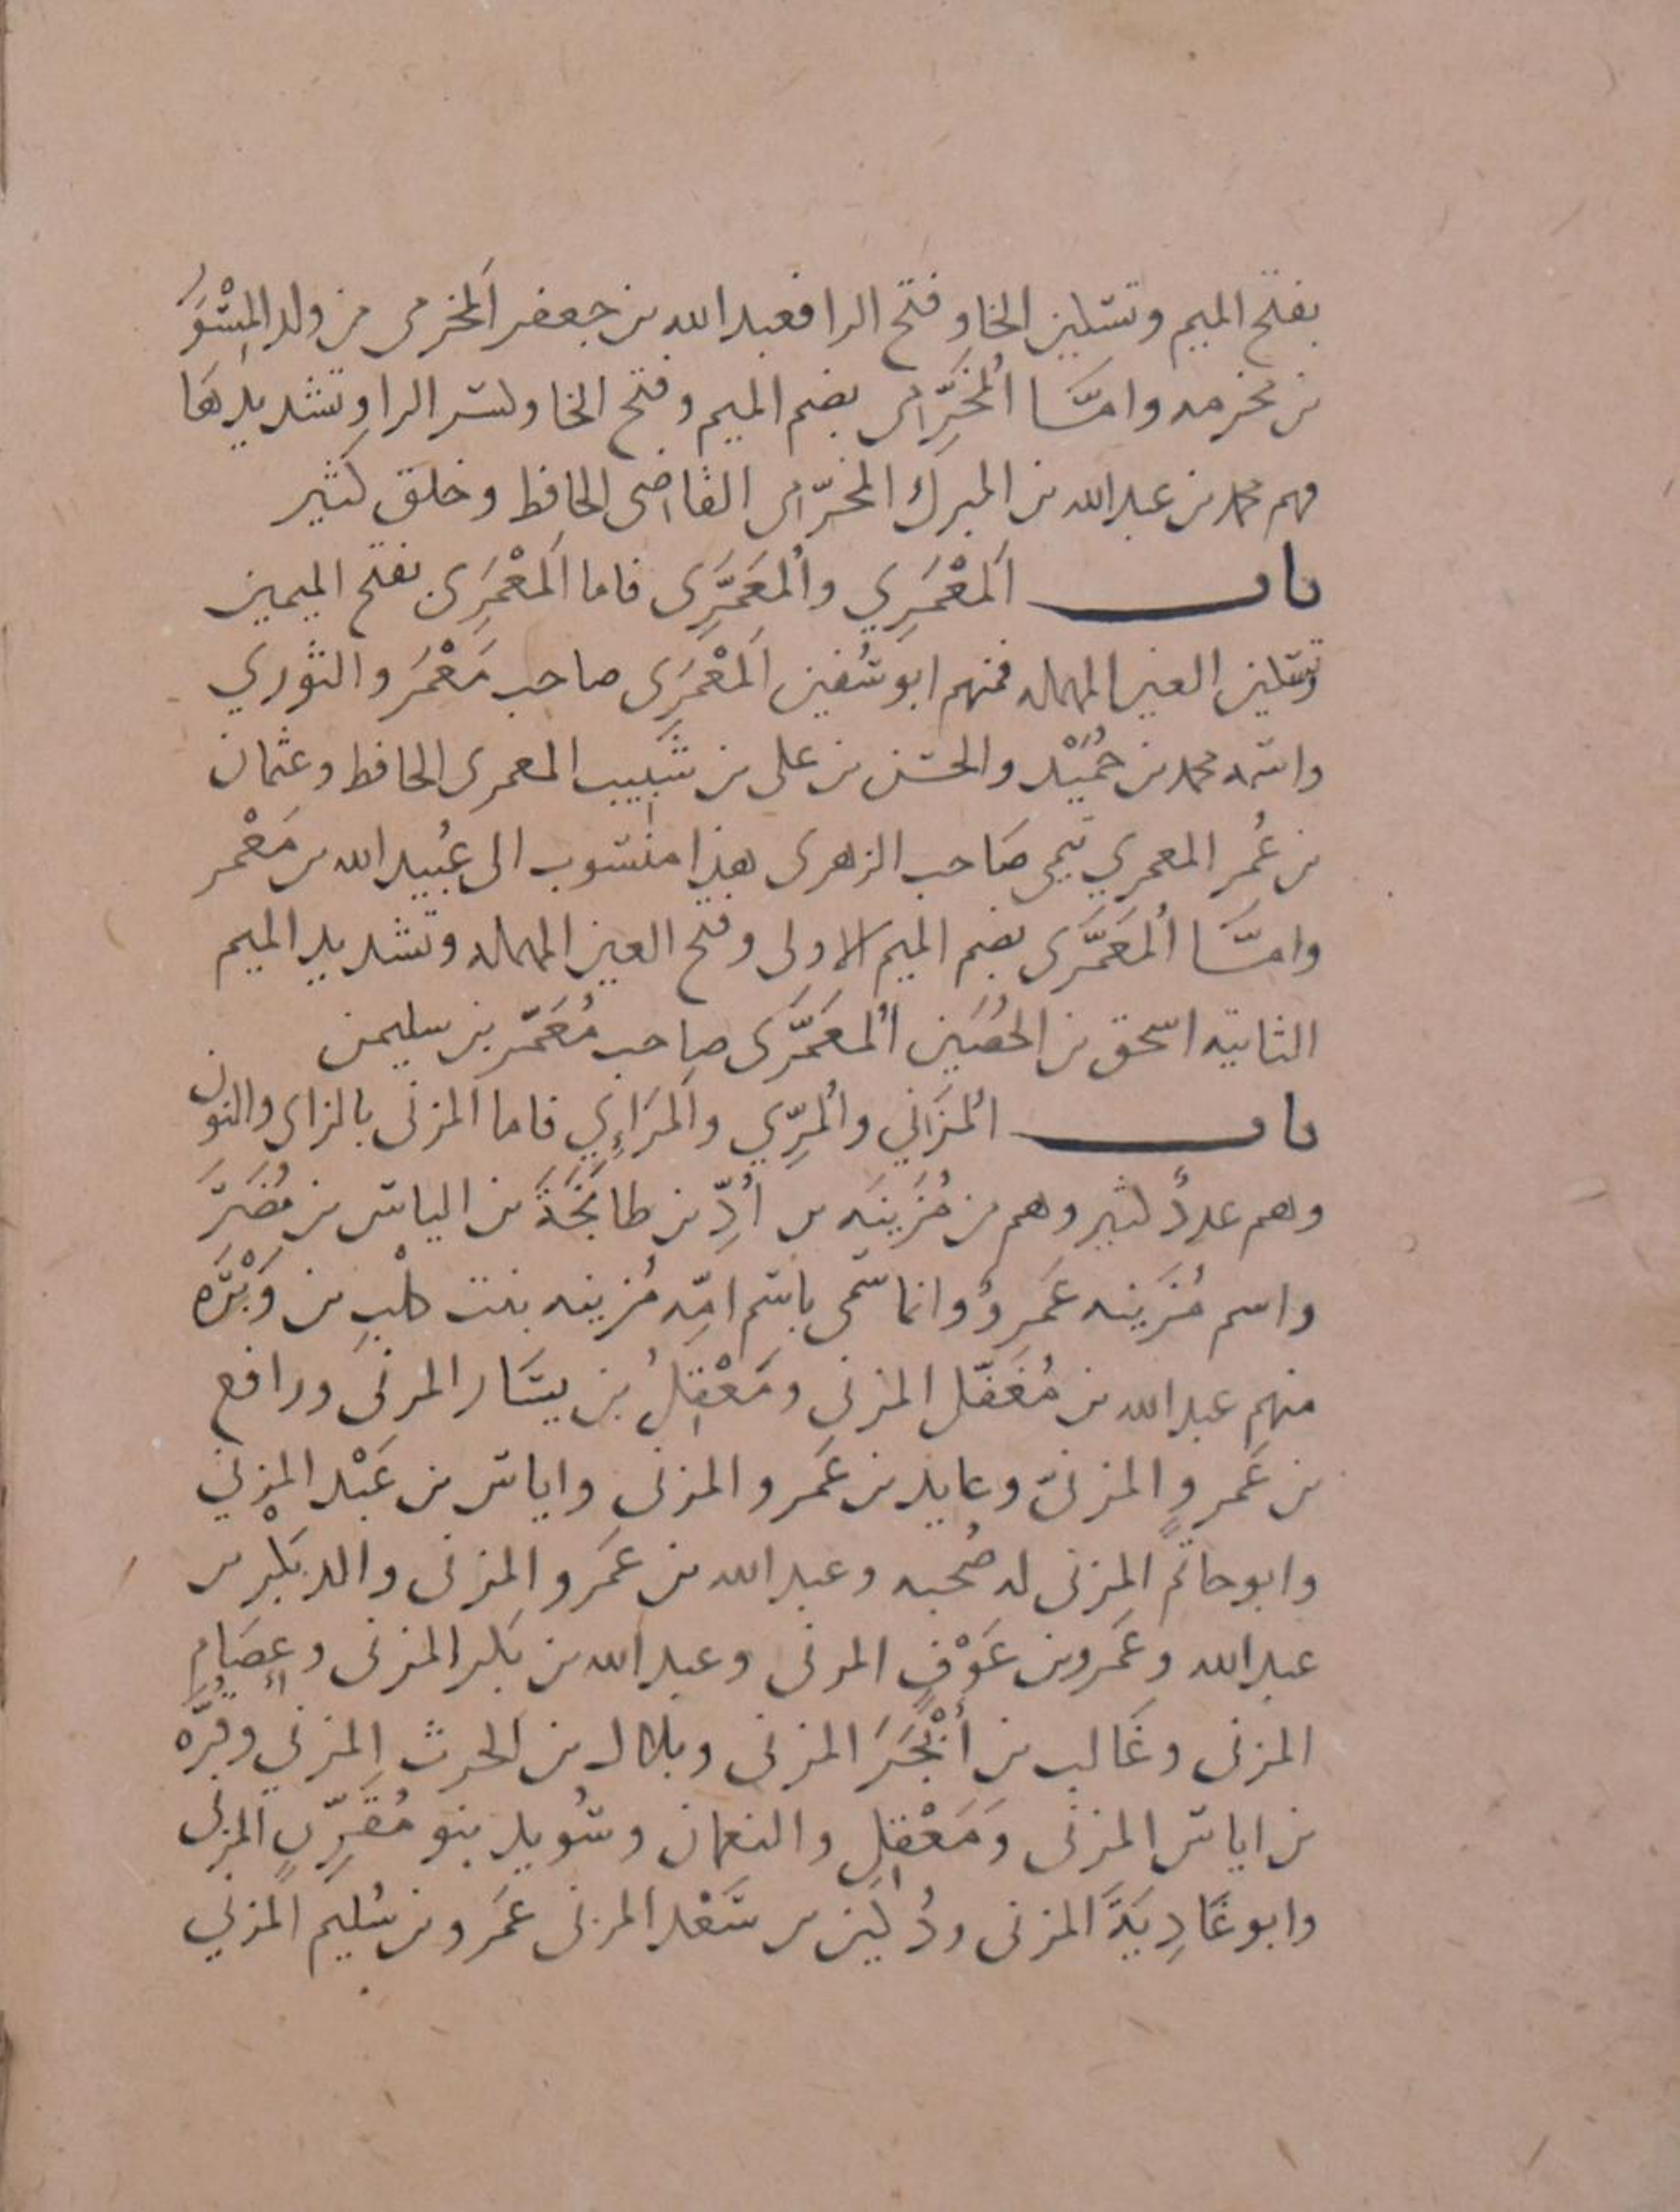 بفتح الميم وتسكين الخا وفتح الرا فعبد الله بن جعفر اَلمخرمى من ولد المِسْوَر
بن مخرمه وامّا اُلمُخَرِّمى بضم الميم وفتح الخا وكسر الرا وتشديدها
فهم محمد بن عبد الله بن المبرك المخرّمى القاضى الحافظ وخلق كثير
باب اَلمَعْمَرِي واُلمُعَمَّرِى فاما اَلمَعْمَرِى بفتح الميمين
وتسكين العين المهمله فمنهم ابو سُفين اَلمَعْمَرِى صاحب مَعْمَر والثوري
واسمه محمد بن حُمَيْد والحسن بن على بن شَبِيب المعمرى الحافظ وعثمان
بن عُمر المعمري تيمى صَاحب الزهرى هذا منسوب الى عُبيد الله بن مَعْمر
وامّا اُلمُعَمَّرى بضم الميم الاولى وفتح العين المهمله وتشديد الميم
الثانيه اسحق بن الحُصَين اُلمُعَمَّرى صاحب مُعَمَّر بن سليمن
باب اُلمُزَني واُلمُرِّي واَلمَرَاءِي فاما المزنى بالزاى والنون
وهم عددٌ كثير وهم من مُزَينَه بن أُدِّ بن طابِخَةَ بن الياس بن مُضَرَ
واسم مُزَينه عَمروٌ وانما سمّى باسم امّه مُزينه بنت كلْبِ بن وَبْرَه
منهم عبد الله بن مُغَفّل المزنى ومَعْقِلُ بن يسَار المزنى ورافع
بن عَمروٍ المزنىّ وعايذ بن عَمرو المزنى واياس بن عَبْد المزني
وابو حاتم المزنى له صُحبه وعبد الله بن عَمرو المزنى والد بكْر بن
عبد الله وعَمرو بن عَوْفٍ المزنى وعبد الله بن بَكر المزنى وعِصَامٍ
المزنى وغَالب بن أَبْجَرَ المزنى وبلال بن الحرث المزني وقُرّه
بن اياس المزنى وَمَعْقِلِ والنعمان وسُويد بنو مُقَرِّنٍ المزنى
وابو غَادِيَةَ المزنى ودُكَين بن سَعْد المزنى عَمرو بن سُليم المزني